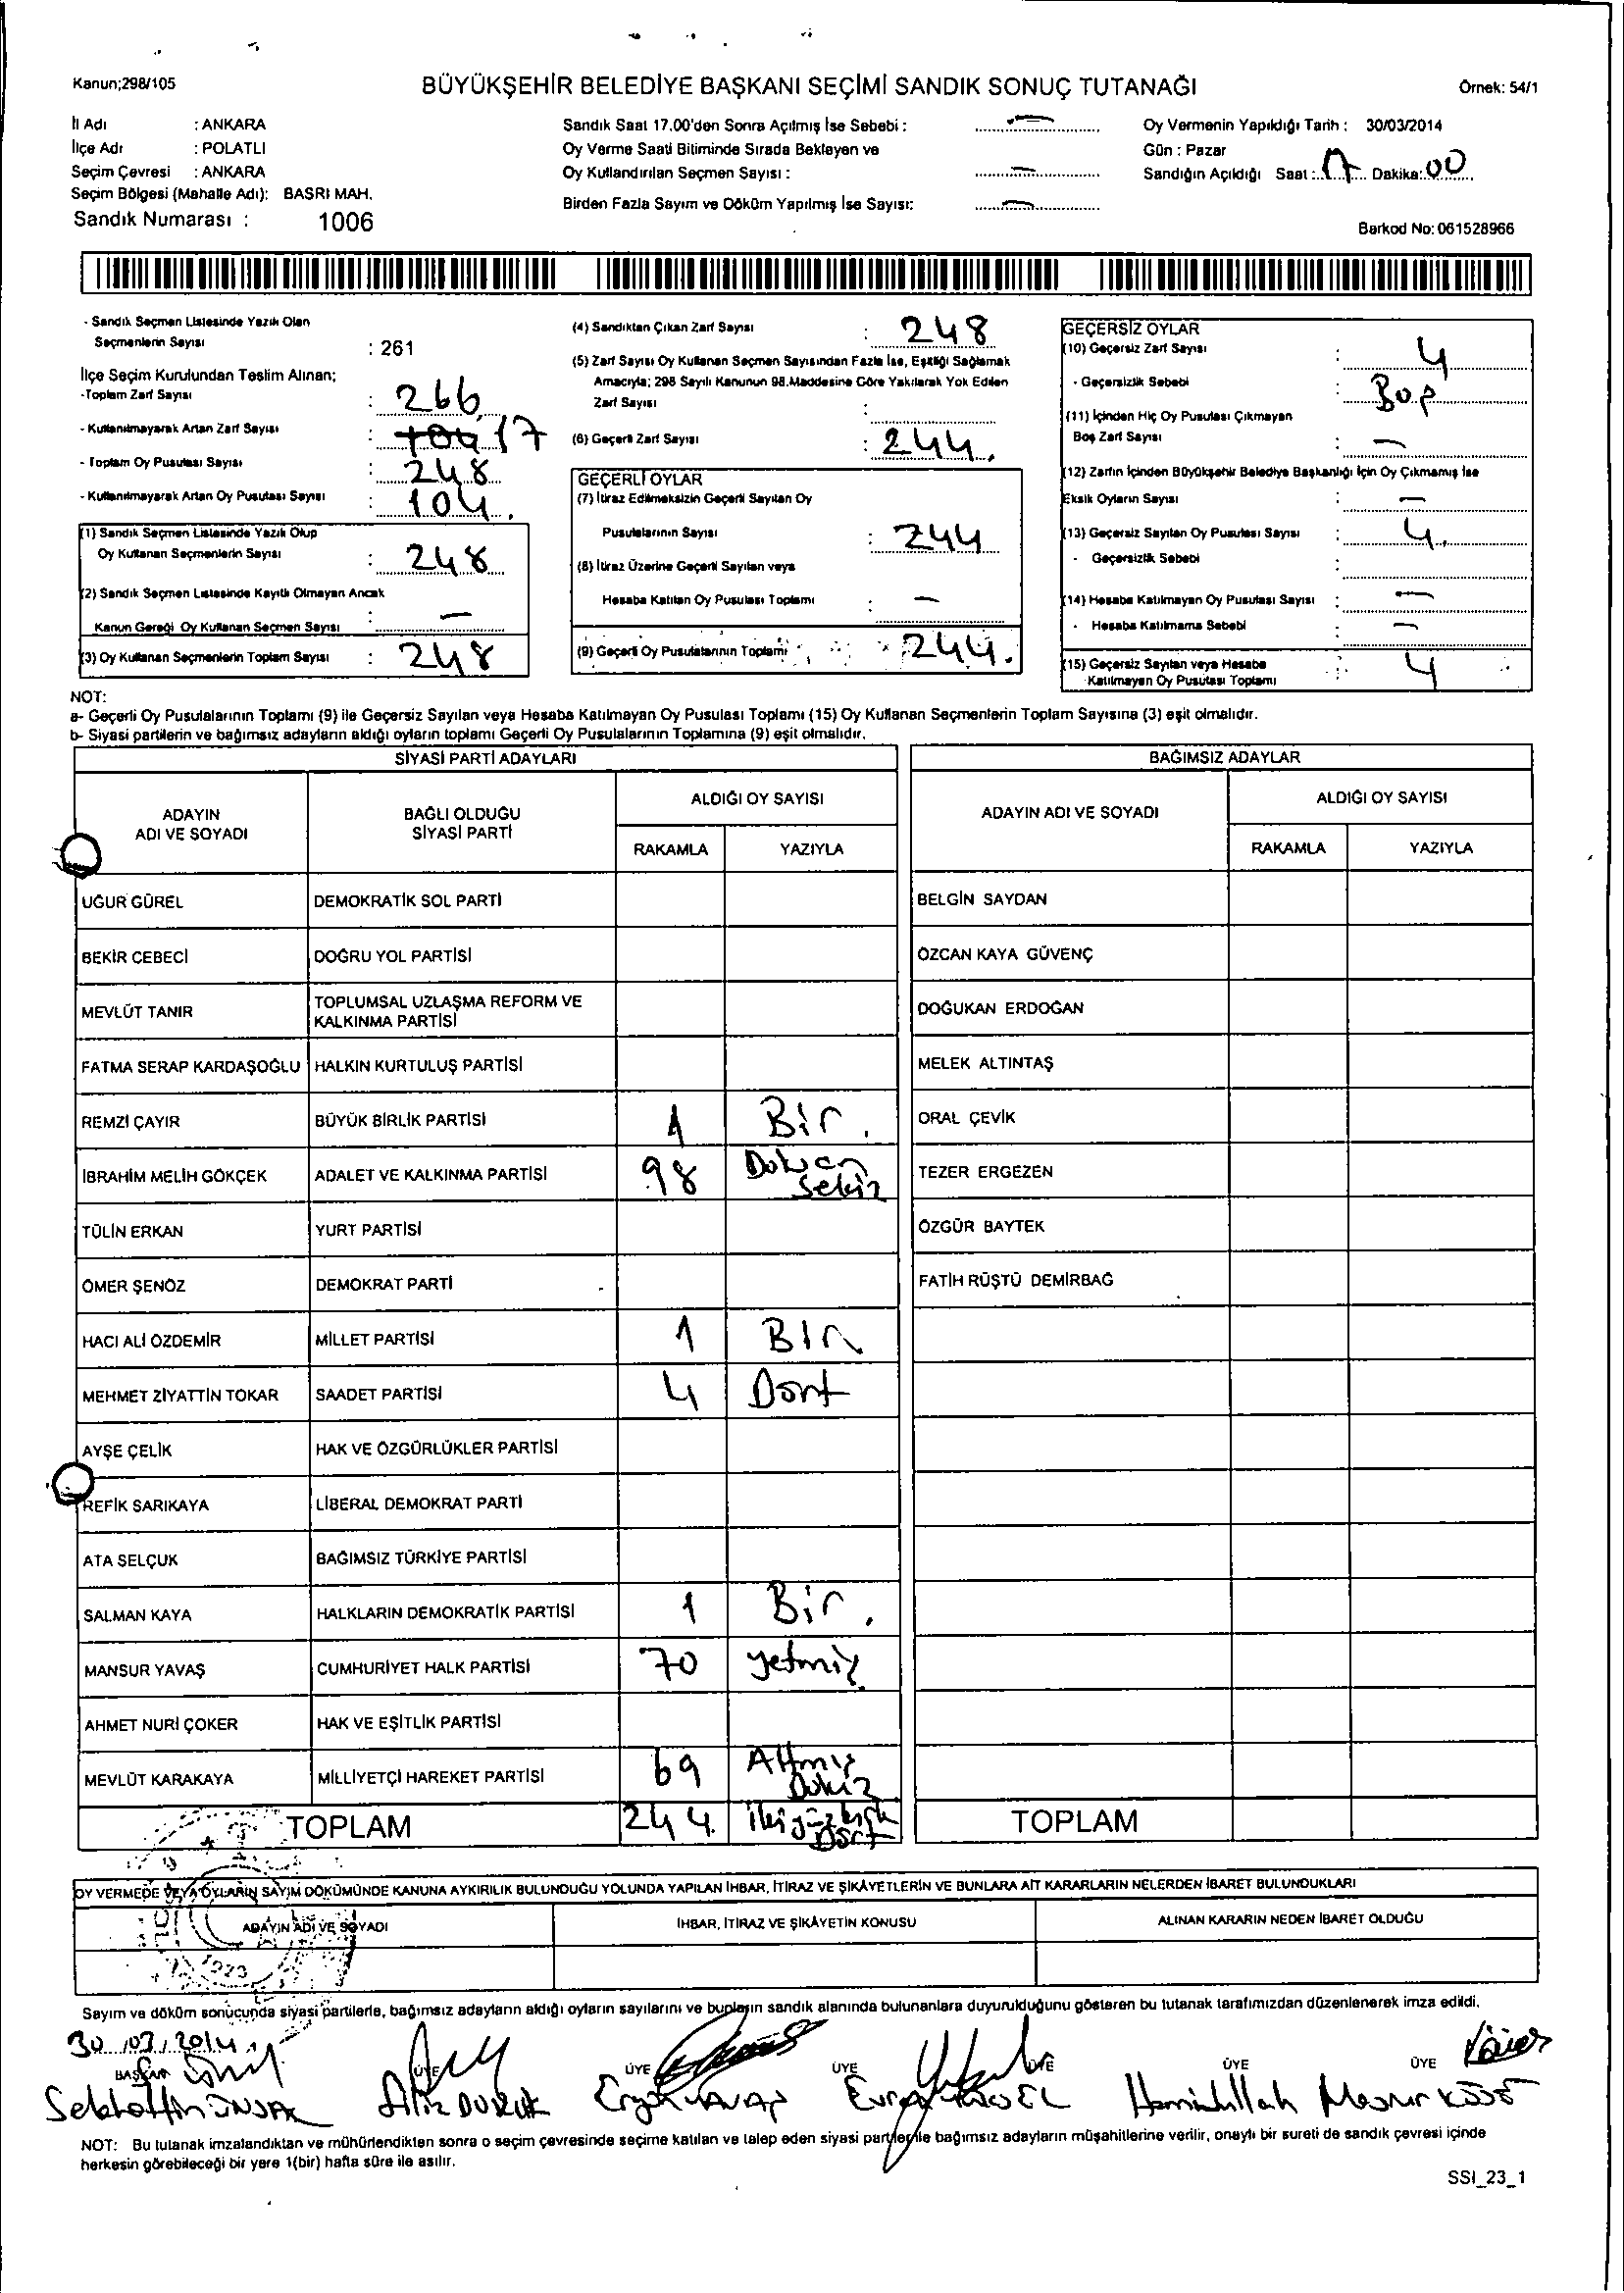 Kanun;298/105
BÜYÜKŞEHİR BELEDİYE BAŞKANI SEÇİMİ SANDIK SONUÇ TUTANAĞI
Örnek: 54/1
İl Adı : ANKARA
İlçe Adı : POLATLI
Seçim Çevresi : ANKARA
Seçim Bölgesi (Mahalle Adı): BASRI MAH.
Sandık Numarası : 1006
Sandık Saat 17.00'den Sonra Açılmış İse Sebebi : —
Oy Verme Saati Bitiminde Sırada Bekleyen ve
Oy Kullandırılan Seçmen Sayısı : —
Birden Fazla Sayım ve Döküm Yapılmış İse Sayısı: —
Oy Vermenin Yapıldığı Tarih : 30/03/2014
Gün : Pazar
Sandığın Açıldığı Saat : 17 Dakika: 00
Barkod No: 061528966
- Sandık Seçmen Listesinde Yazılı Olan
Seçmenlerin Sayısı : 261
İlçe Seçim Kurulundan Teslim Alınan;
-Toplam Zarf Sayısı : 266
- Kullanılmayarak Artan Zarf Sayısı : 104 17
- Toplam Oy Pusulası Sayısı : 248
- Kullanılmayarak Artan Oy Pusulası Sayısı : 104.
(1) Sandık Seçmen Listesinde Yazılı Olup
Oy Kullanan Seçmenlerin Sayısı : 248
(2) Sandık Seçmen Listesinde Kayıtlı Olmayan Ancak
Kanun Gereği Oy Kullanan Seçmen Sayısı : —
(3) Oy Kullanan Seçmenlerin Toplam Sayısı : 248
(4) Sandıktan Çıkan Zarf Sayısı : 248
(5) Zarf Sayısı Oy Kullanan Seçmen Sayısından Fazla İse, Eşitliği Sağlamak
Amacıyla; 298 Sayılı Kanunun 98.Maddesine Göre Yakılarak Yok Edilen
Zarf Sayısı :
(6) Geçerli Zarf Sayısı : 244.
GEÇERLİ OYLAR
(7) İtiraz Edilmeksizin Geçerli Sayılan Oy
Pusulalarının Sayısı : 244
(8) İtiraz Üzerine Geçerli Sayılan veya
Hesaba Katılan Oy Pusulası Toplamı : —
(9) Geçerli Oy Pusulalarının Toplamı : 244.
GEÇERSİZ OYLAR
(10) Geçersiz Zarf Sayısı : 4
- Geçersizlik Sebebi : Boş
(11) İçinden Hiç Oy Pusulası Çıkmayan
Boş Zarf Sayısı : —
(12) Zarfın İçinden Büyükşehir Belediye Başkanlığı İçin Oy Çıkmamış İse
Eksik Oyların Sayısı : —
(13) Geçersiz Sayılan Oy Pusulası Sayısı : 4.
- Geçersizlik Sebebi :
(14) Hesaba Katılmayan Oy Pusulası Sayısı : —
- Hesaba Katılmama Sebebi : —
(15) Geçersiz Sayılan veya Hesaba
Katılmayan Oy Pusulası Toplamı : 4
NOT:
a- Geçerli Oy Pusulalarının Toplamı (9) ile Geçersiz Sayılan veya Hesaba Katılmayan Oy Pusulası Toplamı (15) Oy Kullanan Seçmenlerin Toplam Sayısına (3) eşit olmalıdır.
b- Siyasi partilerin ve bağımsız adayların aldığı oyların toplamı Geçerli Oy Pusulalarının Toplamına (9) eşit olmalıdır.
SİYASİ PARTİ ADAYLARI
BAĞIMSIZ ADAYLAR
ADAYIN ADI VE SOYADI
BAĞLI OLDUĞU SİYASİ PARTİ
ALDIĞI OY SAYISI
RAKAMLA YAZIYLA
ADAYIN ADI VE SOYADI
ALDIĞI OY SAYISI
RAKAMLA YAZIYLA
UĞUR GÜREL DEMOKRATİK SOL PARTİ BELGİN SAYDAN
BEKİR CEBECİ DOĞRU YOL PARTİSİ ÖZCAN KAYA GÜVENÇ
MEVLÜT TANIR TOPLUMSAL UZLAŞMA REFORM VE KALKINMA PARTİSİ DOĞUKAN ERDOĞAN
FATMA SERAP KARDAŞOĞLU HALKIN KURTULUŞ PARTİSİ MELEK ALTINTAŞ
REMZİ ÇAYIR BÜYÜK BİRLİK PARTİSİ 1 Bir. ORAL ÇEVİK
İBRAHİM MELİH GÖKÇEK ADALET VE KALKINMA PARTİSİ 98 Doksan Sekiz TEZER ERGEZEN
TÜLİN ERKAN YURT PARTİSİ ÖZGÜR BAYTEK
ÖMER ŞENÖZ DEMOKRAT PARTİ FATİH RÜŞTÜ DEMİRBAĞ
HACI ALİ ÖZDEMİR MİLLET PARTİSİ 1 BIR
MEHMET ZİYATTİN TOKAR SAADET PARTİSİ 4 Dört
AYŞE ÇELİK HAK VE ÖZGÜRLÜKLER PARTİSİ
REFİK SARIKAYA LİBERAL DEMOKRAT PARTİ
ATA SELÇUK BAĞIMSIZ TÜRKİYE PARTİSİ
SALMAN KAYA HALKLARIN DEMOKRATİK PARTİSİ 1 Bir.
MANSUR YAVAŞ CUMHURİYET HALK PARTİSİ 70 yetmiş
AHMET NURİ ÇOKER HAK VE EŞİTLİK PARTİSİ
MEVLÜT KARAKAYA MİLLİYETÇİ HAREKET PARTİSİ 69 Altmış Dokuz
TOPLAM 244. ikiyüzkırk Dört TOPLAM
OY VERMEDE VEYA OYLARIN SAYIM DÖKÜMÜNDE KANUNA AYKIRILIK BULUNDUĞU YOLUNDA YAPILAN İHBAR, İTİRAZ VE ŞİKÂYETLERİN VE BUNLARA AİT KARARLARIN NELERDEN İBARET BULUNDUKLARI
ADAYIN ADI VE SOYADI İHBAR, İTİRAZ VE ŞİKÂYETİN KONUSU ALINAN KARARIN NEDEN İBARET OLDUĞU
1923
Sayım ve döküm sonucunda siyasi partilerle, bağımsız adayların aldığı oyların sayılarını ve bunların sandık alanında bulunanlara duyurulduğunu gösteren bu tutanak tarafımızdan düzenlenerek imza edildi.
30/03/2014
BAŞKAN ÜYE ÜYE ÜYE ÜYE ÜYE ÜYE
Hamidullah Mesnur KÖSE
NOT: Bu tutanak imzalandıktan ve mühürlendikten sonra o seçim çevresinde seçime katılan ve talep eden siyasi partiler ile bağımsız adayların müşahitlerine verilir, onaylı bir sureti de sandık çevresi içinde
herkesin görebileceği bir yere 1(bir) hafta süre ile asılır.
SSI_23_1